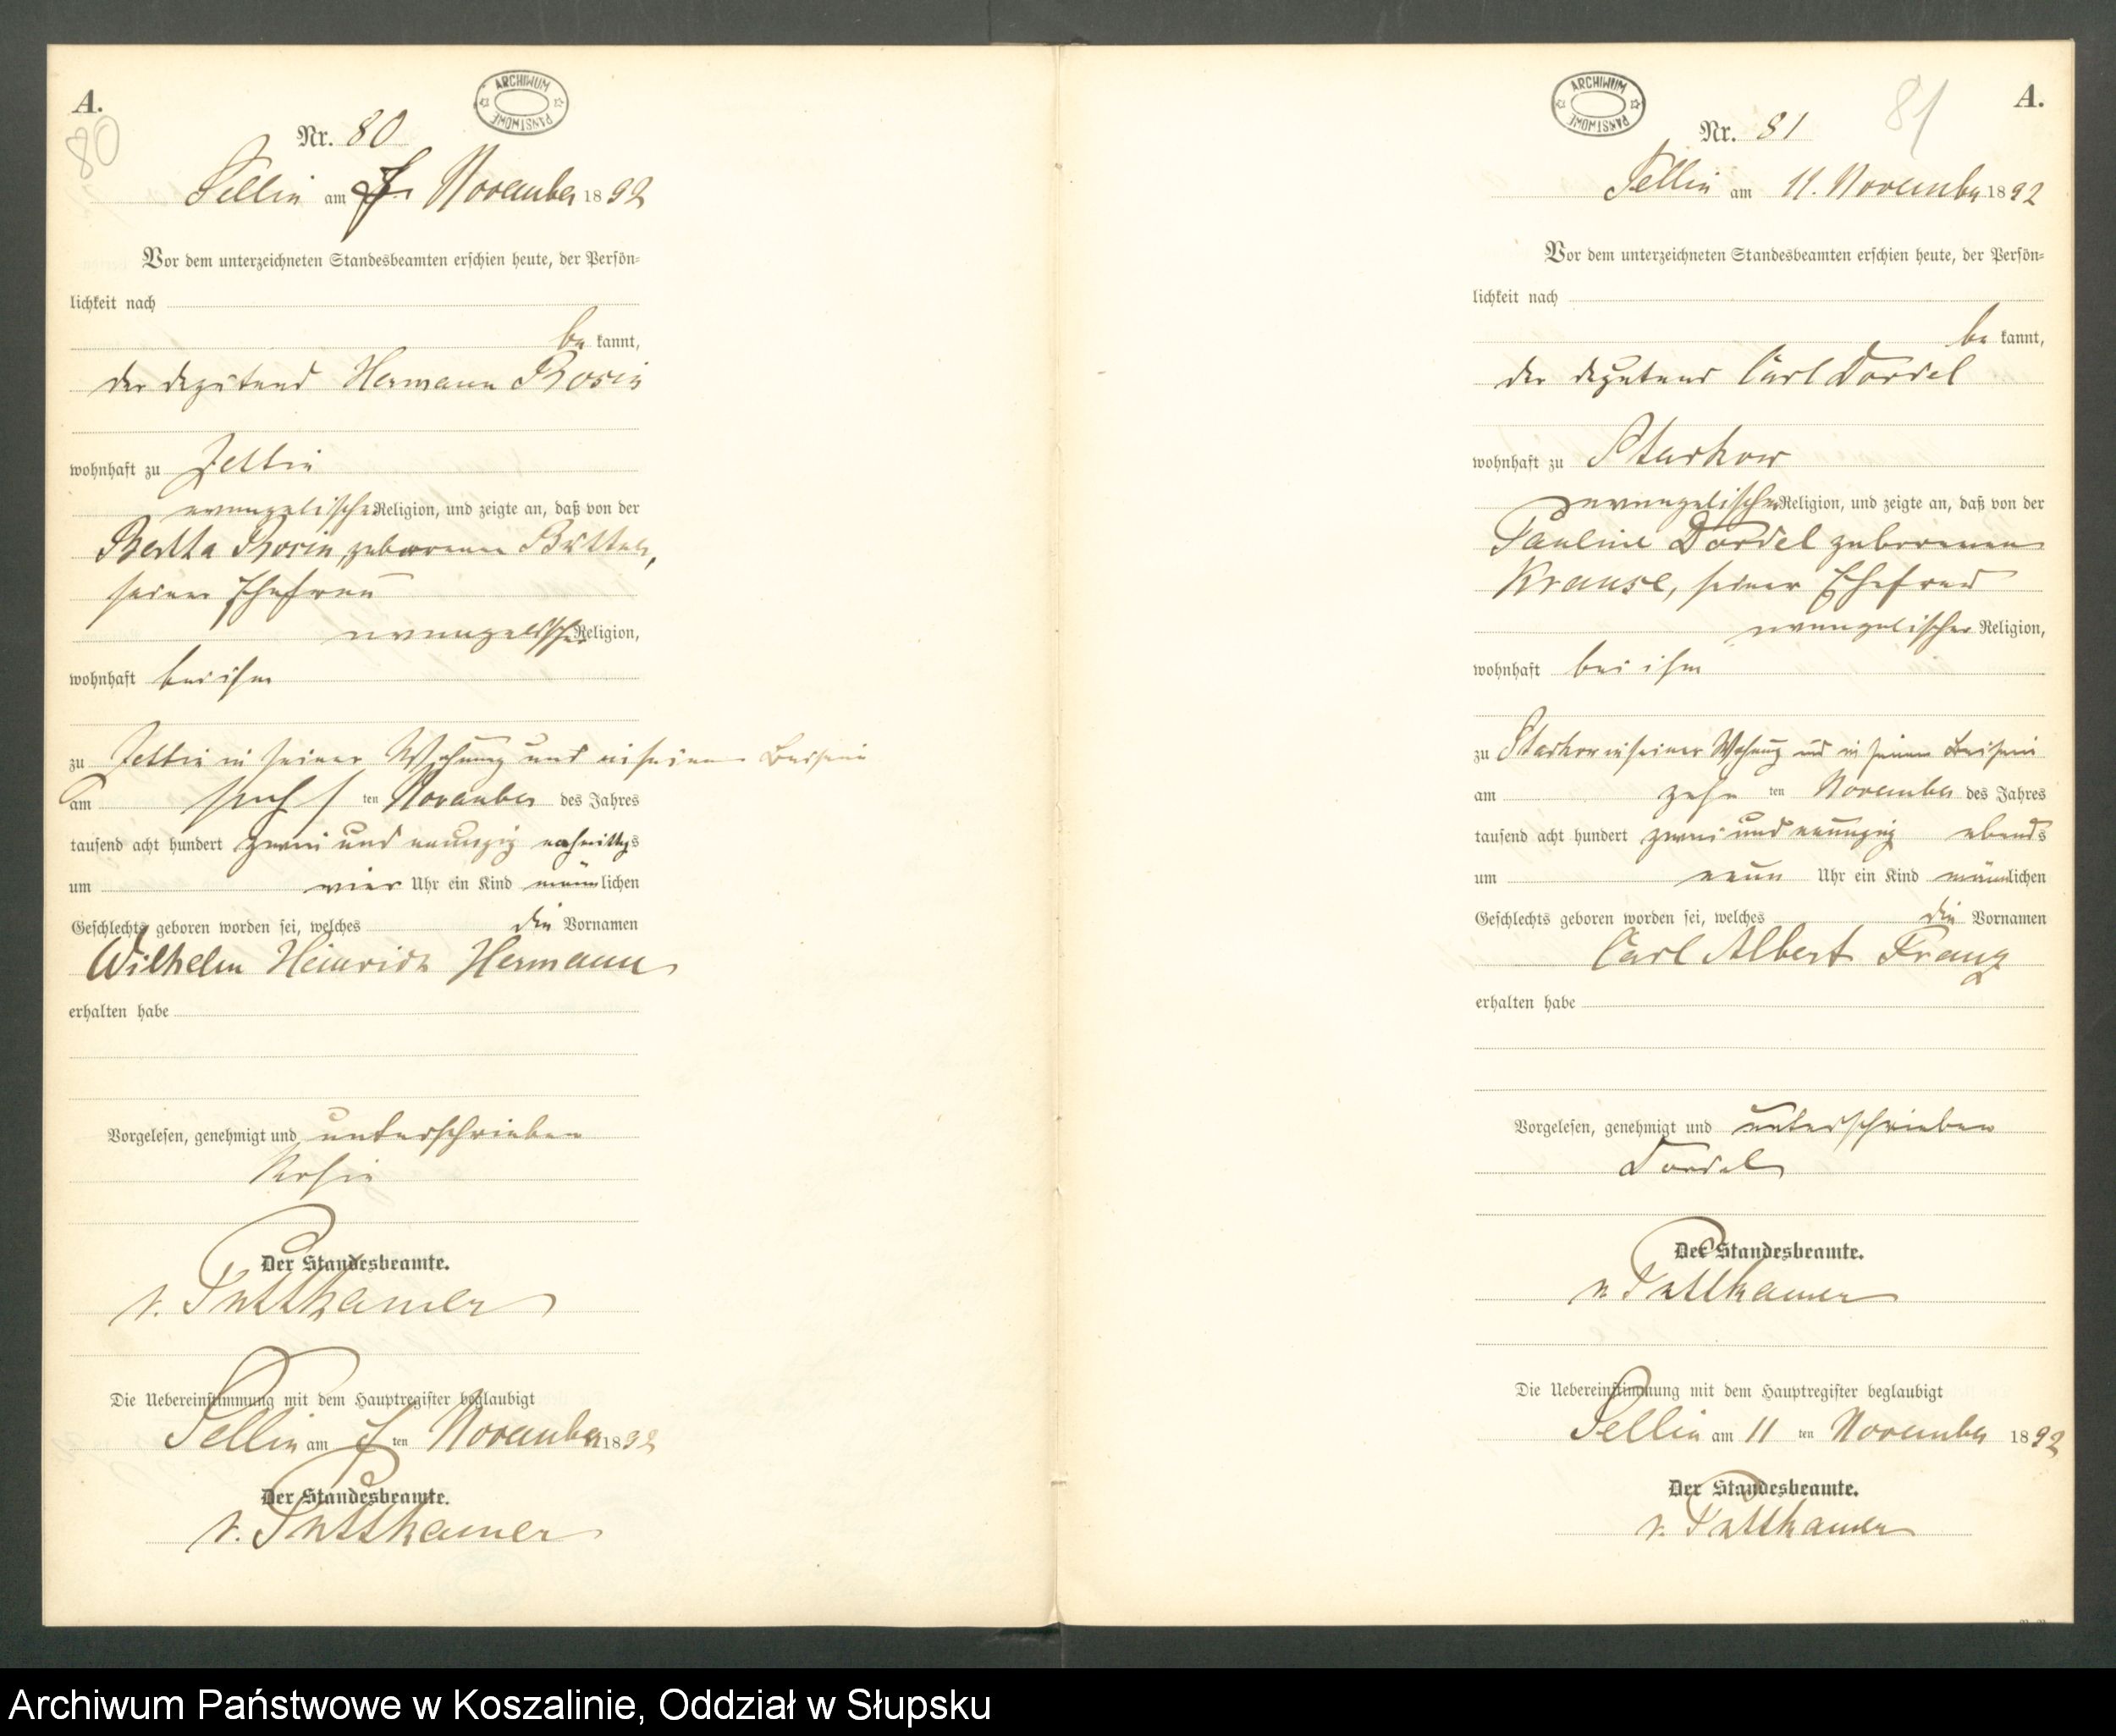 A.
80
ARCHIWUM PAŃSTWOWE
Nr. 80
Sellin am November 1892
Vor dem unterzeichneten Standesbeamten erschien heute, der Persön-
lichkeit nach
be kannt,
der deputant Hermann Rosin
wohnhaft zu Jellin
evangelischer Religion, und zeigte an, daß von der
Bertha Rosin, geborenen
seiner Ehefrau
evangelischer Religion,
wohnhaft bei ihm
zu Jellin in seiner Wohnung und in seinem Beisein
am sechs ten November des Jahres
tausend acht hundert zwei und neunzig nachmittags
um vier Uhr ein Kind männlichen
Geschlechts geboren worden sei, welches die Vornamen
Wilhelm Heinrich Hermann
erhalten habe
Vorgelesen, genehmigt und unterschrieben
Rosin
Der Standesbeamte.
v. Puttkamer
Die Uebereinstimmung mit dem Hauptregister beglaubigt
Sellin am ten November 1892
Der Standesbeamte.
v. Puttkamer
A.
81
ARCHIWUM PAŃSTWOWE
Nr. 81
Sellin am 11. November 1892
Vor dem unterzeichneten Standesbeamten erschien heute, der Persön-
lichkeit nach
be kannt,
der deputant Carl Dordel
wohnhaft zu Starkow
evangelischer Religion, und zeigte an, daß von der
Pauline Dordel geborenen
Krause, seiner Ehefrau
evangelischer Religion,
wohnhaft bei ihm
zu Starkow in seiner Wohnung und in seinem Beisein
am zehn ten November des Jahres
tausend acht hundert zwei und neunzig abends
um neun Uhr ein Kind männlichen
Geschlechts geboren worden sei, welches die Vornamen
Carl Albert Franz
erhalten habe
Vorgelesen, genehmigt und unterschrieben
Dordel
Der Standesbeamte.
v. Puttkamer
Die Uebereinstimmung mit dem Hauptregister beglaubigt
Sellin am 11 ten November 1892
Der Standesbeamte.
v. Puttkamer
Archiwum Państwowe w Koszalinie, Oddział w Słupsku